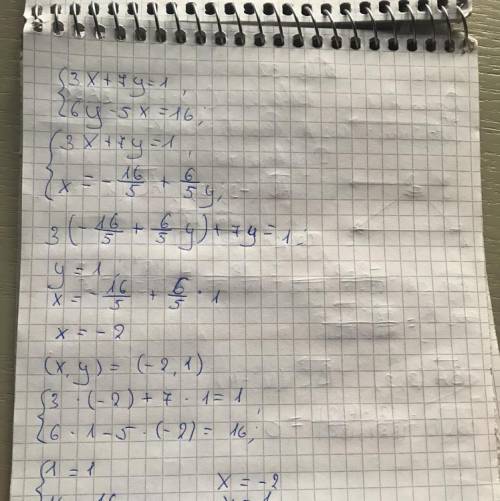 {3x+7y=1,
{6y-5x=16;
{3x+7y=1,
{x=-16/5+6/5y,
3(-16/5+6/5y)+7y=1;
y=1
x=-16/5+6/5·1
x=-2
(x,y)=(-2,1)
{3·(-2)+7·1=1,
{6·1-5·(-2)=16;
{1=1 x=-2